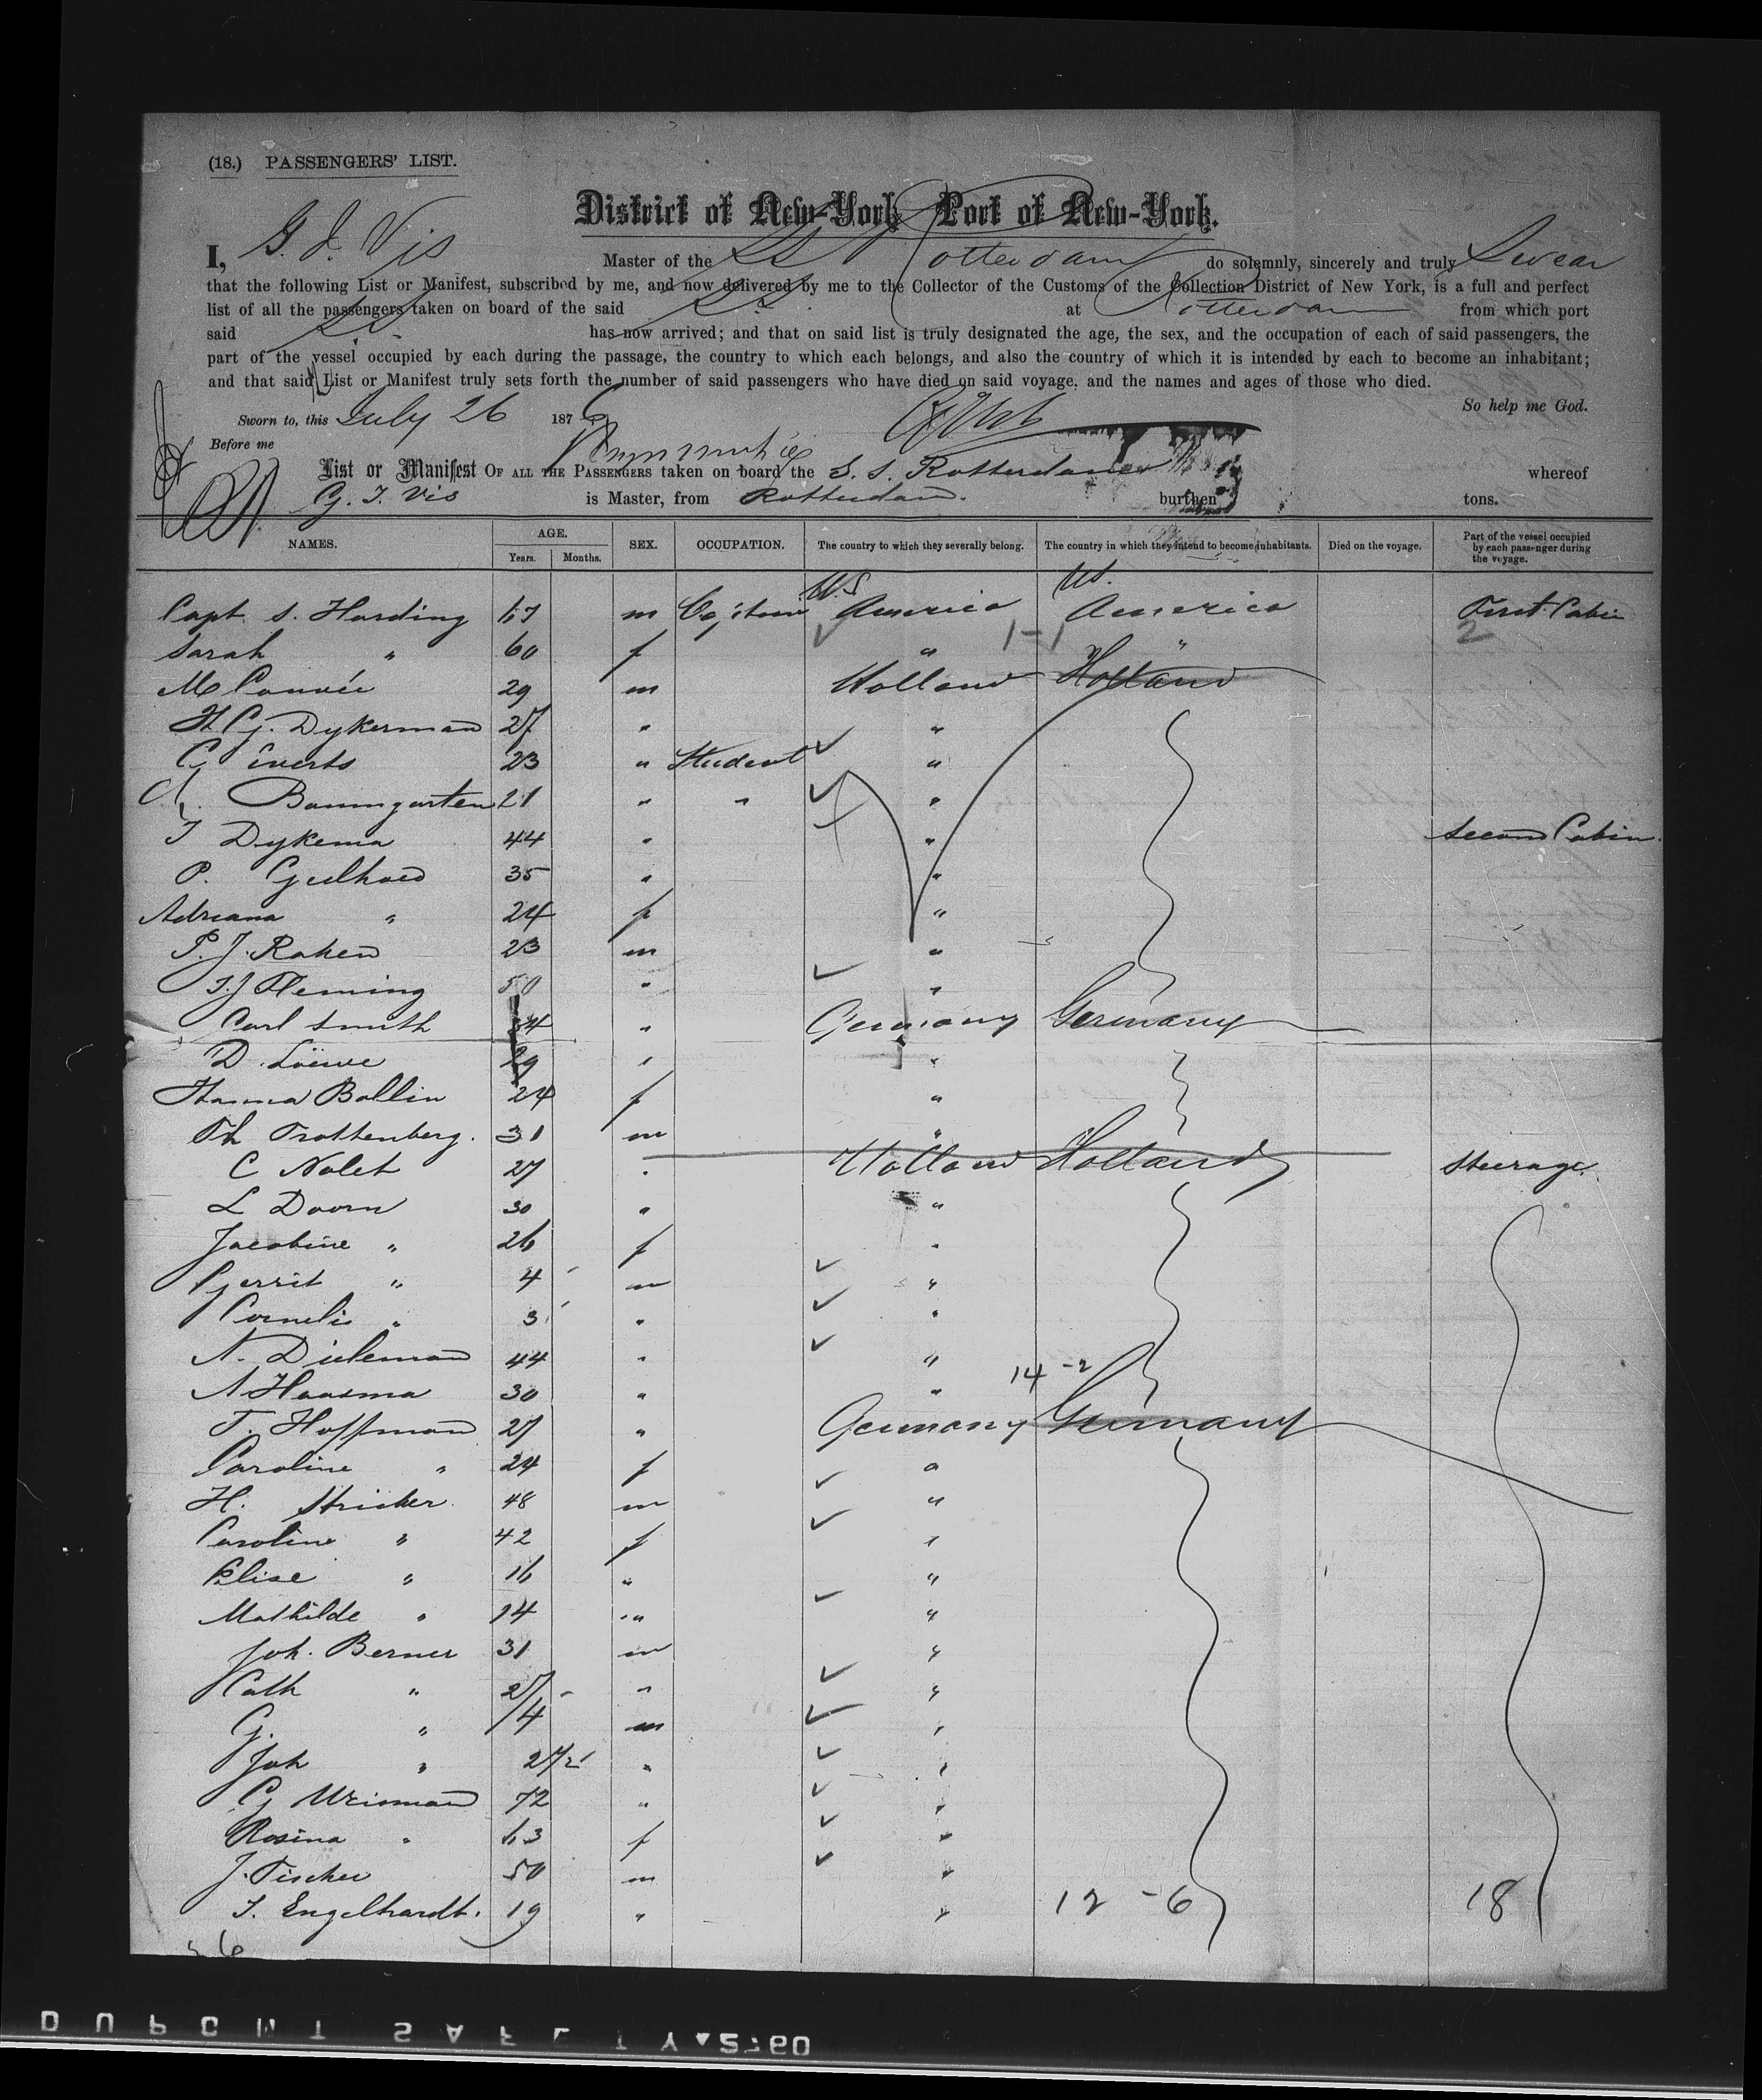 (18.) PASSENGERS' LIST.
District of New-York Port of New-York.
I, G. J. Vis Master of the SS Rotterdam do solemnly, sincerely and truly Swear
that the following List or Manifest, subscribed by me, and now delivered by me to the Collector of the Customs of the Collection District of New York, is a full and perfect
list of all the passengers taken on board of the said S.S. at Rotterdam from which port
said SS. has now arrived; and that on said list is truly designated the age, the sex, and the occupation of each of said passengers, the
part of the vessel occupied by each during the passage, the country to which each belongs, and also the country of which it is intended by each to become an inhabitant;
and that said List or Manifest truly sets forth the number of said passengers who have died on said voyage, and the names and ages of those who died.
So help me God.
Sworn to, this July 26 1876
Before me
List or Manifest OF ALL THE PASSENGERS taken on board the S. S. Rotterdam whereof
G. J. Vis is Master, from Rotterdam. burthen tons.
NAMES. AGE. Years. Months. SEX. OCCUPATION. The country to which they severally belong. The country in which they intend to become inhabitants. Died on the voyage. Part of the vessel occupied by each passenger during the voyage.
U.S US.
Capt. S. Harding 67 m Captain America America First Cabin
Sarah " 60 f " 1-1 " 2
M 29 m Holland Holland
H G. Dykerman 27 " "
G Everts 23 " Student "
Baumgarten 21 " " "
J Dykema 44 " " Second Cabin.
P. Geelhoed 35 " "
Adriana " 24 f "
P. J. Raken 23 m "
J. J Fleming 50 " "
Carl Smith 34 " Germany Germany
D. Löewe 29 " "
Hanna Bollin 24 f "
Th Trottenberg. 31 m "
C Nolet 27 " Holland Holland Steerage.
L Doorn 30 " "
Jacobine " 26 f "
Gerrit " 4 m "
Cornelis " 3 " "
N. Dieleman 44 " "
14 -2
A Haasma 30 " "
T. Hoffman 27 " Germany Germany
Caroline " 24 f "
H. Stricker 48 m "
Caroline " 42 f "
Elise " 16 " "
Mathilde " 14 " "
Joh. Berner 31 m "
Cath " 27 " "
G. " 4 m "
Joh " 2 " "
G Weisman 72 " "
Rosina " 63 f "
J. Fischer 50 m "
J. Engelhardt. 19 " " 12 -6 18
36
DUPONT SAFETY